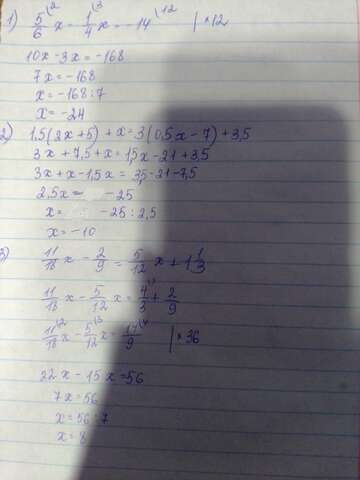 1) 5/6 \2 x - 1/4 \3 x = -14 \12 | ×12
10x - 3x = -168
7x = -168
x = -168 : 7
x = -24
2) 1,5(2x+5) + x = 3(0,5x - 7) + 3,5
3x + 7,5 + x = 1,5x - 21 + 3,5
3x + x - 1,5x = 3,5 - 21 - 7,5
2,5x = -25
x = -25 : 2,5
x = -10
3) 11/18 x - 2/9 = 5/12 x + 1 1/3
11/18 x - 5/12 x = 4/3 + 2/9
11/18 \2 x - 5/12 \3 x = 14/9 \4 | × 36
22x - 15x = 56
7x = 56
x = 56 : 7
x = 8